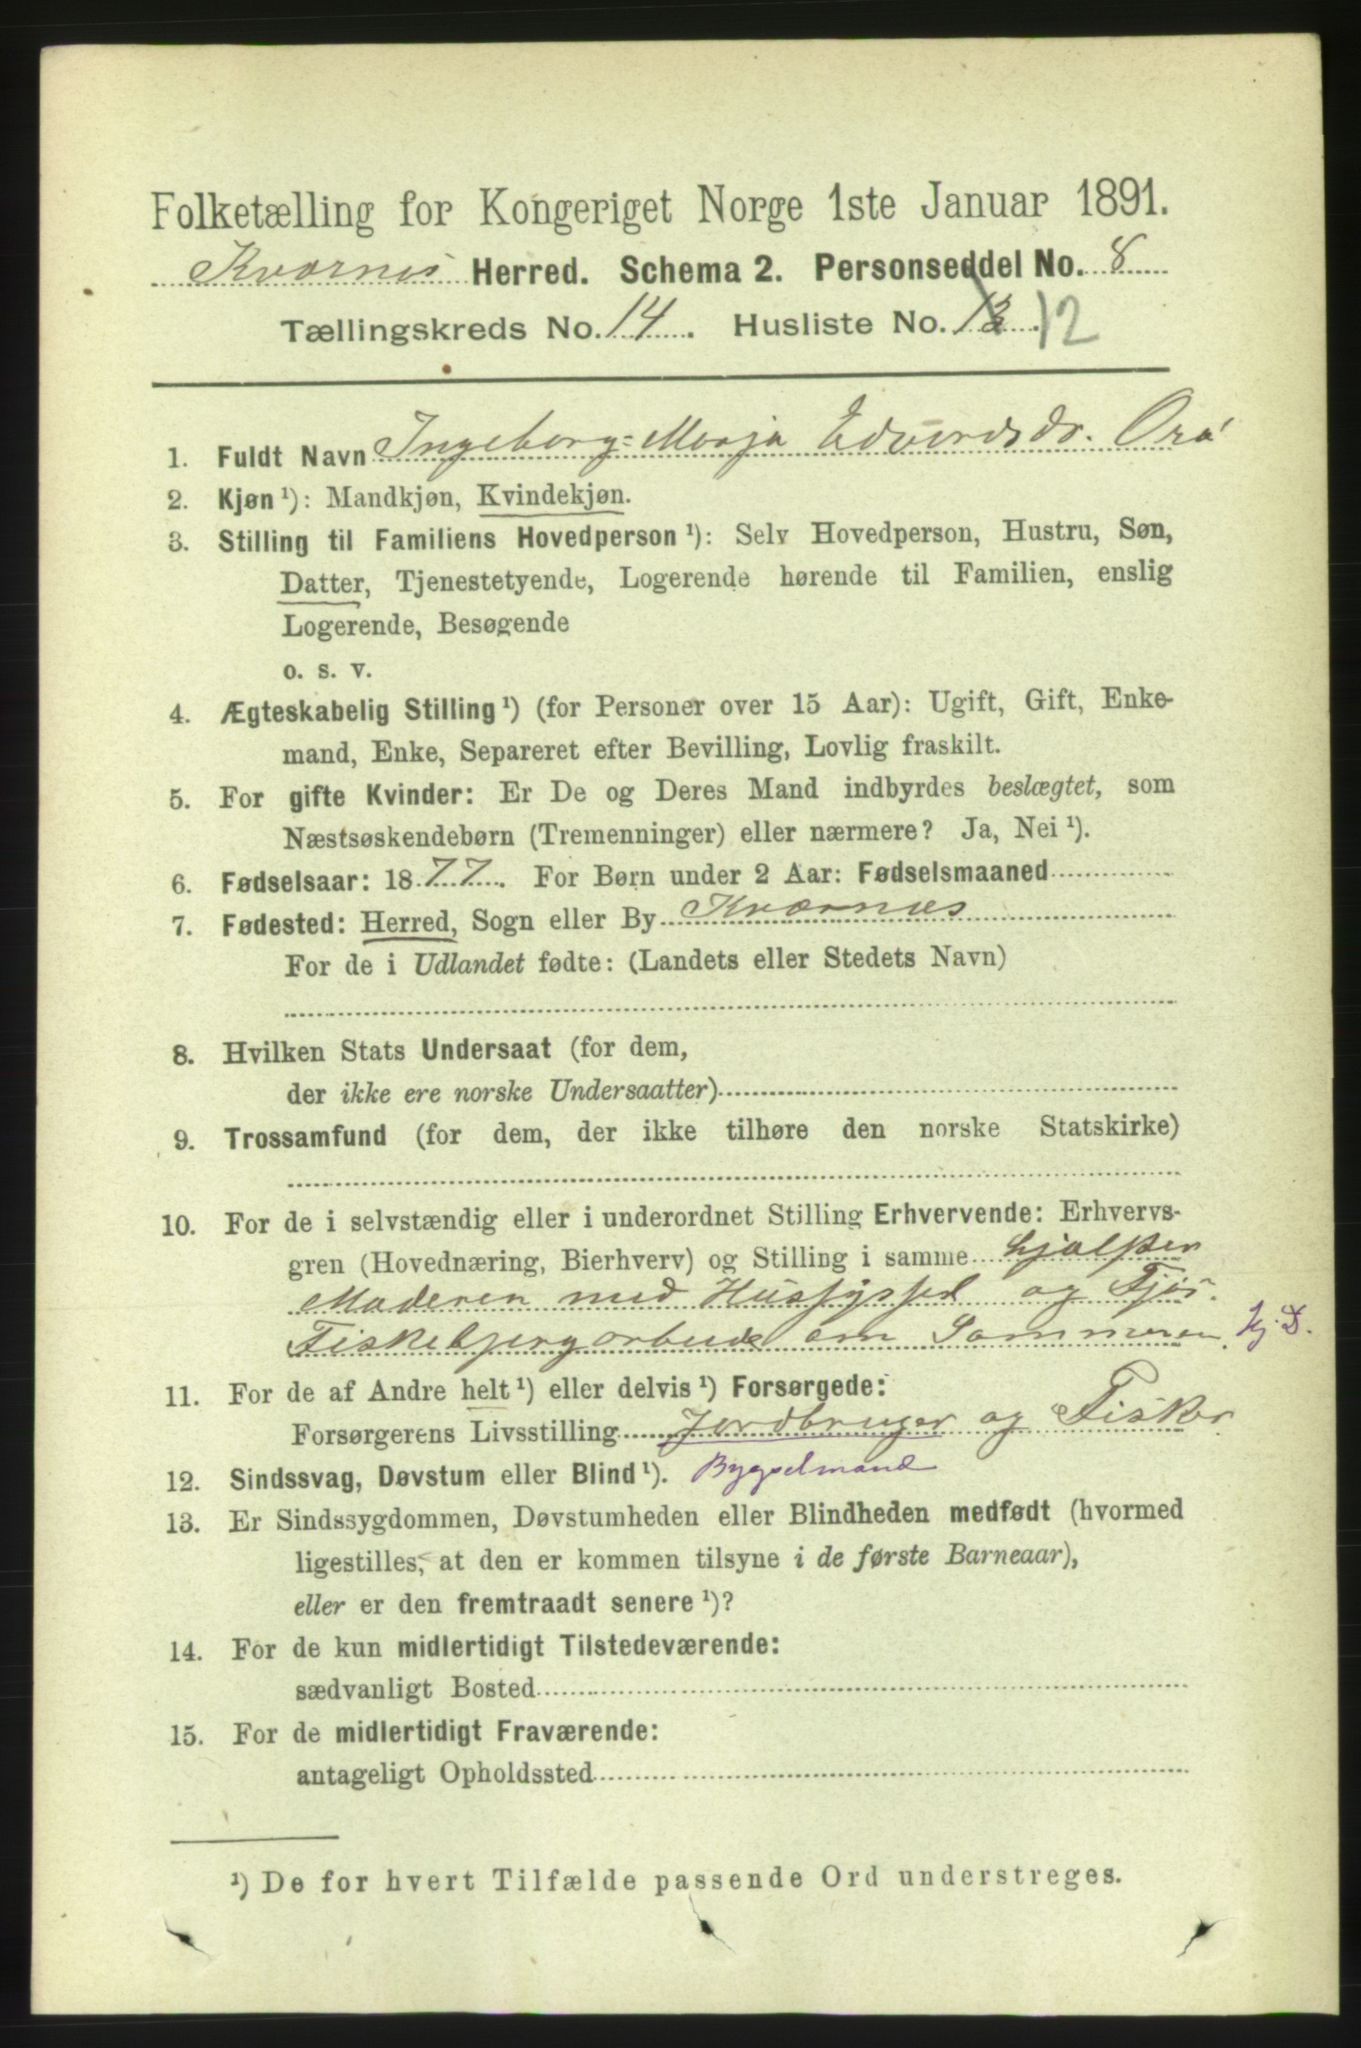 Folketælling for Kongeriget Norge 1ste Januar 1891.
Kværnes Herred. Schema 2. Personseddel No. 8
Tællingskreds No. 14. Husliste No. 13. 12
1. Fuldt Navn Ingeborg=Marja Edvardsdr. Ora
2. Kjøn ¹): Mandkjøn, Kvindekjøn.
3. Stilling til Familiens Hovedperson ¹): Selv Hovedperson, Hustru, Søn,
Datter, Tjenestetyende, Logerende hørende til Familien, enslig
Logerende, Besøgende
o. s. v.
4. Ægteskabelig Stilling ¹) (for Personer over 15 Aar): Ugift, Gift, Enke-
mand, Enke, Separeret efter Bevilling, Lovlig fraskilt.
5. For gifte Kvinder: Er De og Deres Mand indbyrdes beslægtet, som
Næstsøskendebørn (Tremenninger) eller nærmere? Ja, Nei ¹).
6. Fødselsaar: 1877. For Børn under 2 Aar: Fødselsmaaned
7. Fødested: Herred, Sogn eller By Kværnes
For de i Udlandet fødte: (Landets eller Stedets Navn)
8. Hvilken Stats Undersaat (for dem,
der ikke ere norske Undersaatter)
9. Trossamfund (for dem, der ikke tilhøre den norske Statskirke)
10. For de i selvstændig eller i underordnet Stilling Erhvervende: Erhvervs-
gren (Hovednæring, Bierhverv) og Stilling i samme hjælper
Moderen med Hussyssel og Fjøs.
Fiskebjergarbeide om Sommeren. hj. D.
11. For de af Andre helt ¹) eller delvis ¹) Forsørgede:
Forsørgerens Livsstilling Jordbruger og Fisker
12. Sindssvag, Døvstum eller Blind ¹). Bygselmand
13. Er Sindssygdommen, Døvstumheden eller Blindheden medfødt (hvormed
ligestilles, at den er kommen tilsyne i de første Barneaar),
eller er den fremtraadt senere ¹)?
14. For de kun midlertidigt Tilstedeværende:
sædvanligt Bosted
15. For de midlertidigt Fraværende:
antageligt Opholdssted
¹) De for hvert Tilfælde passende Ord understreges.